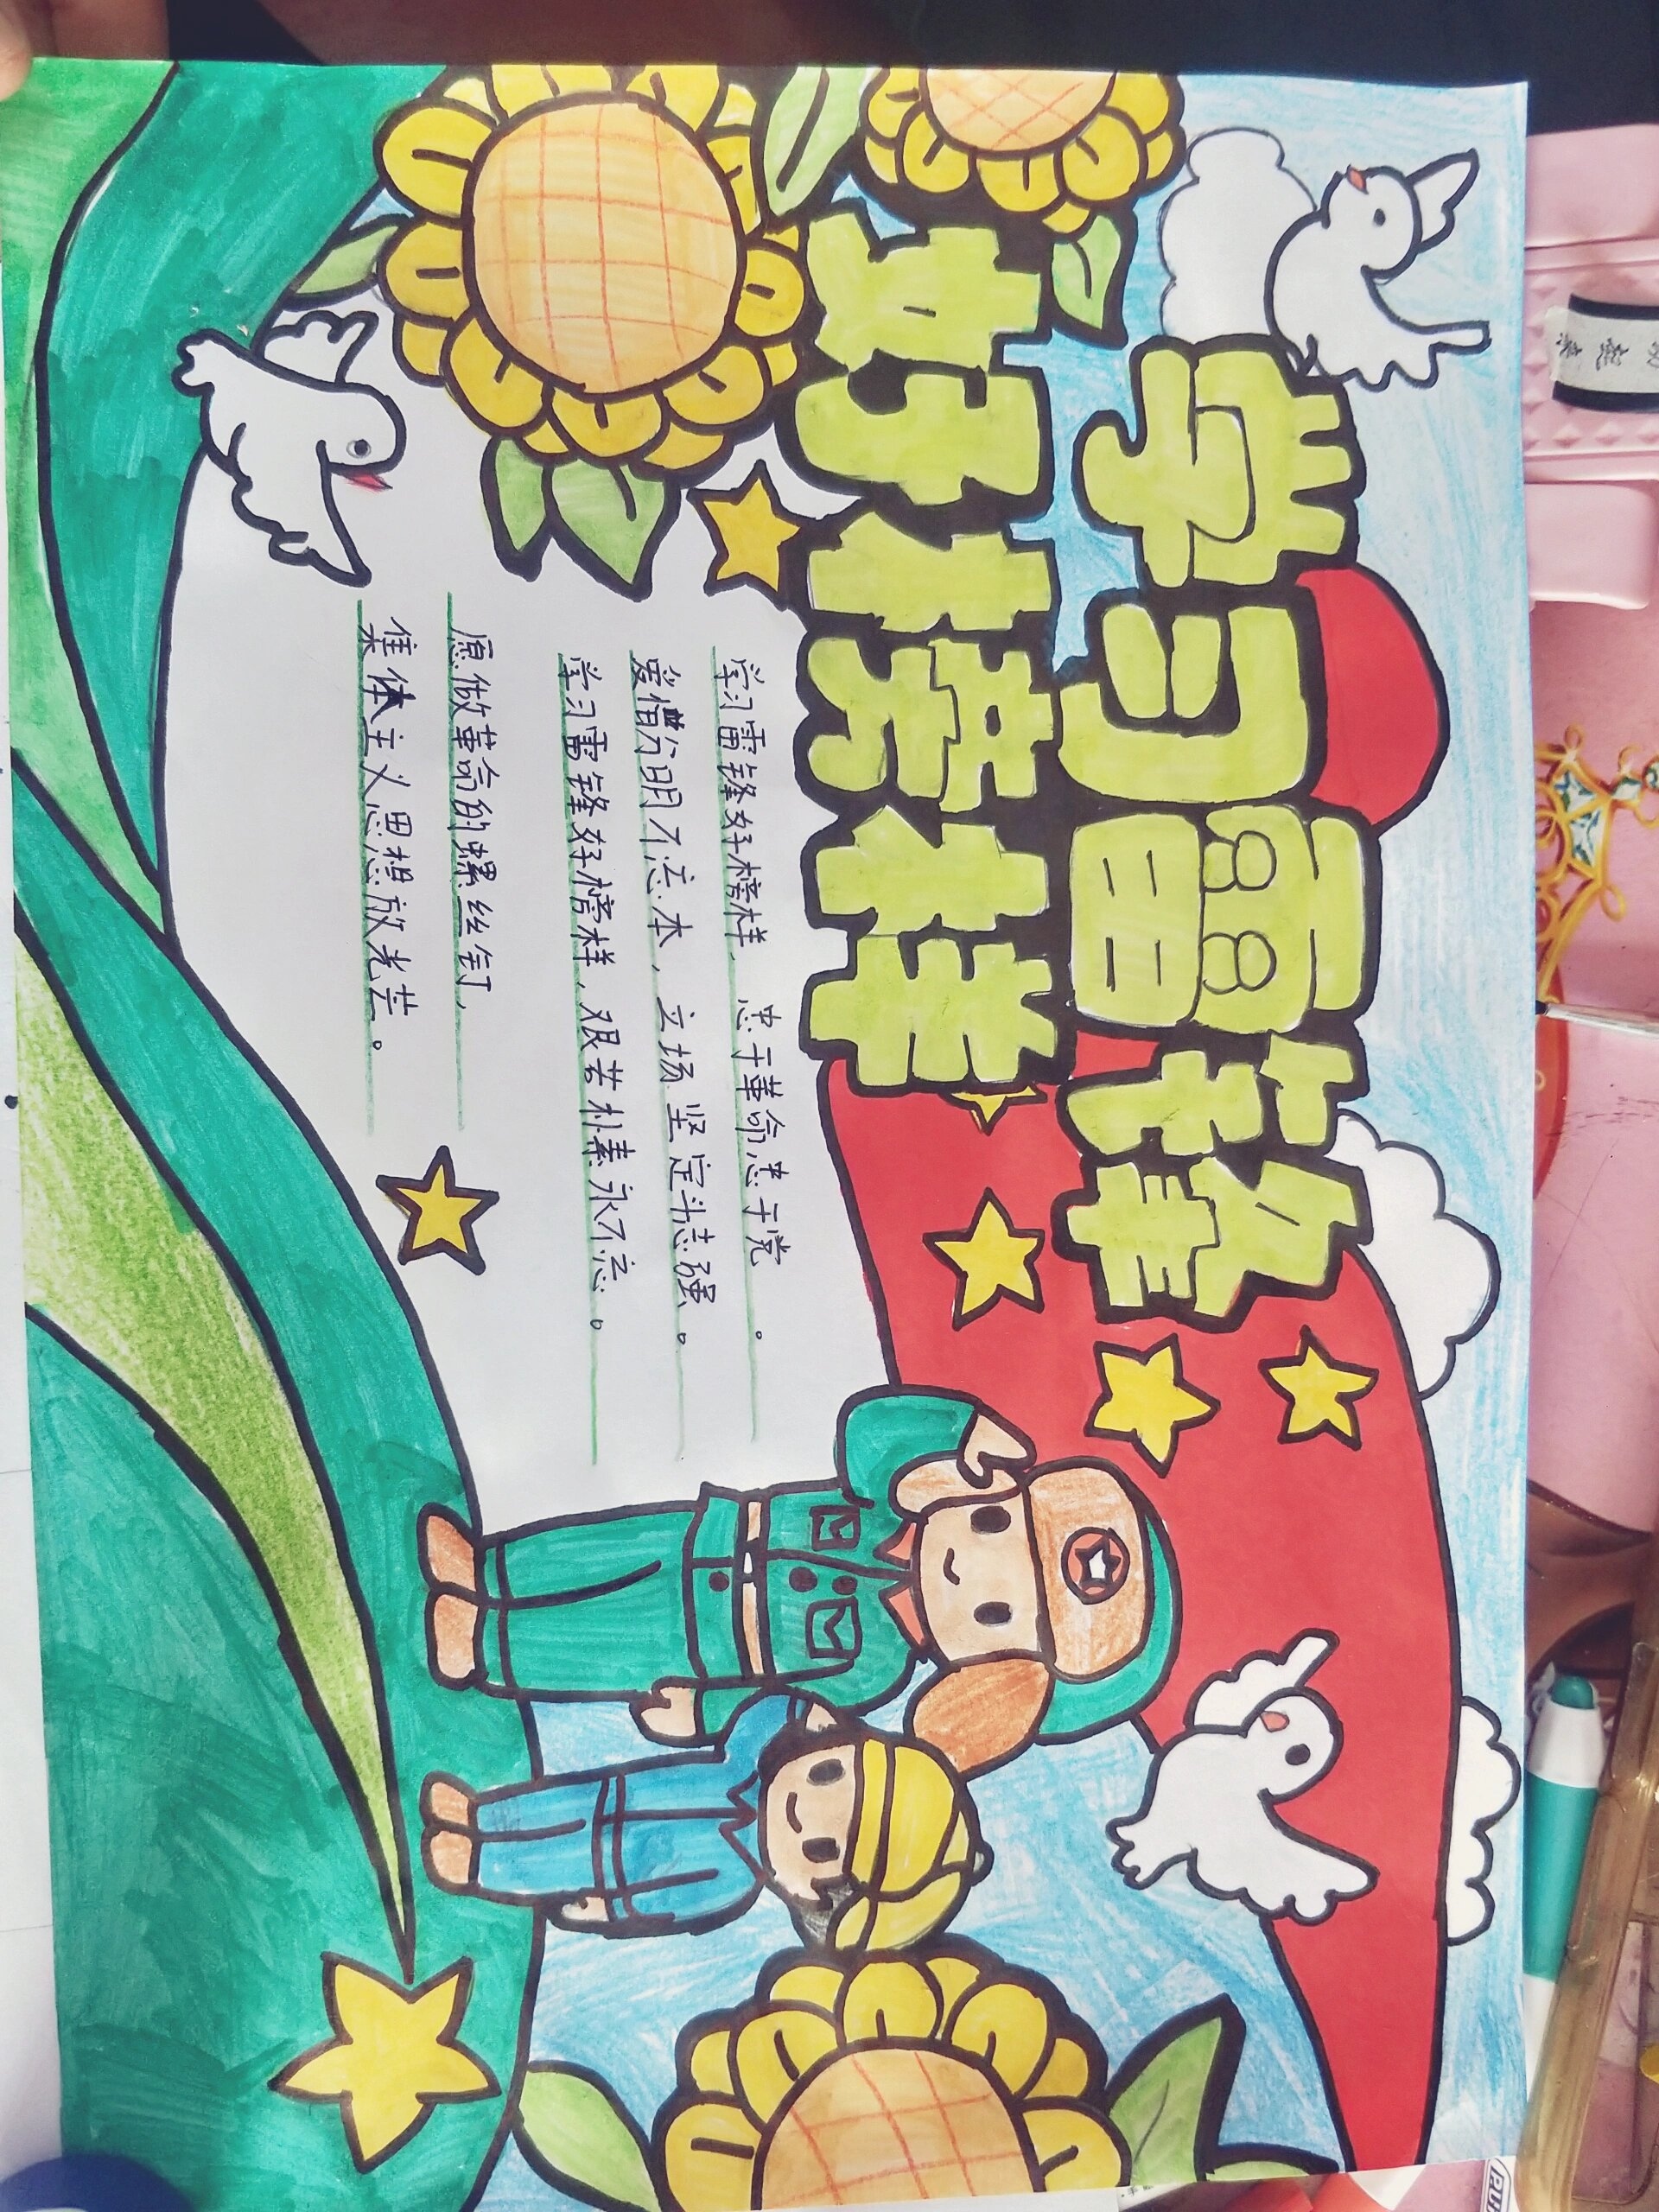 学习雷锋
好榜样
学习雷锋好榜样，忠于革命忠于党。
爱憎分明不忘本，立场坚定斗志强。
学习雷锋好榜样，艰苦朴素永不忘。
愿做革命的螺丝钉，
集体主义思想放光芒。